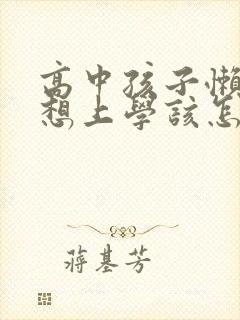 高中孩子懶
想上學該怎
蔣基芳